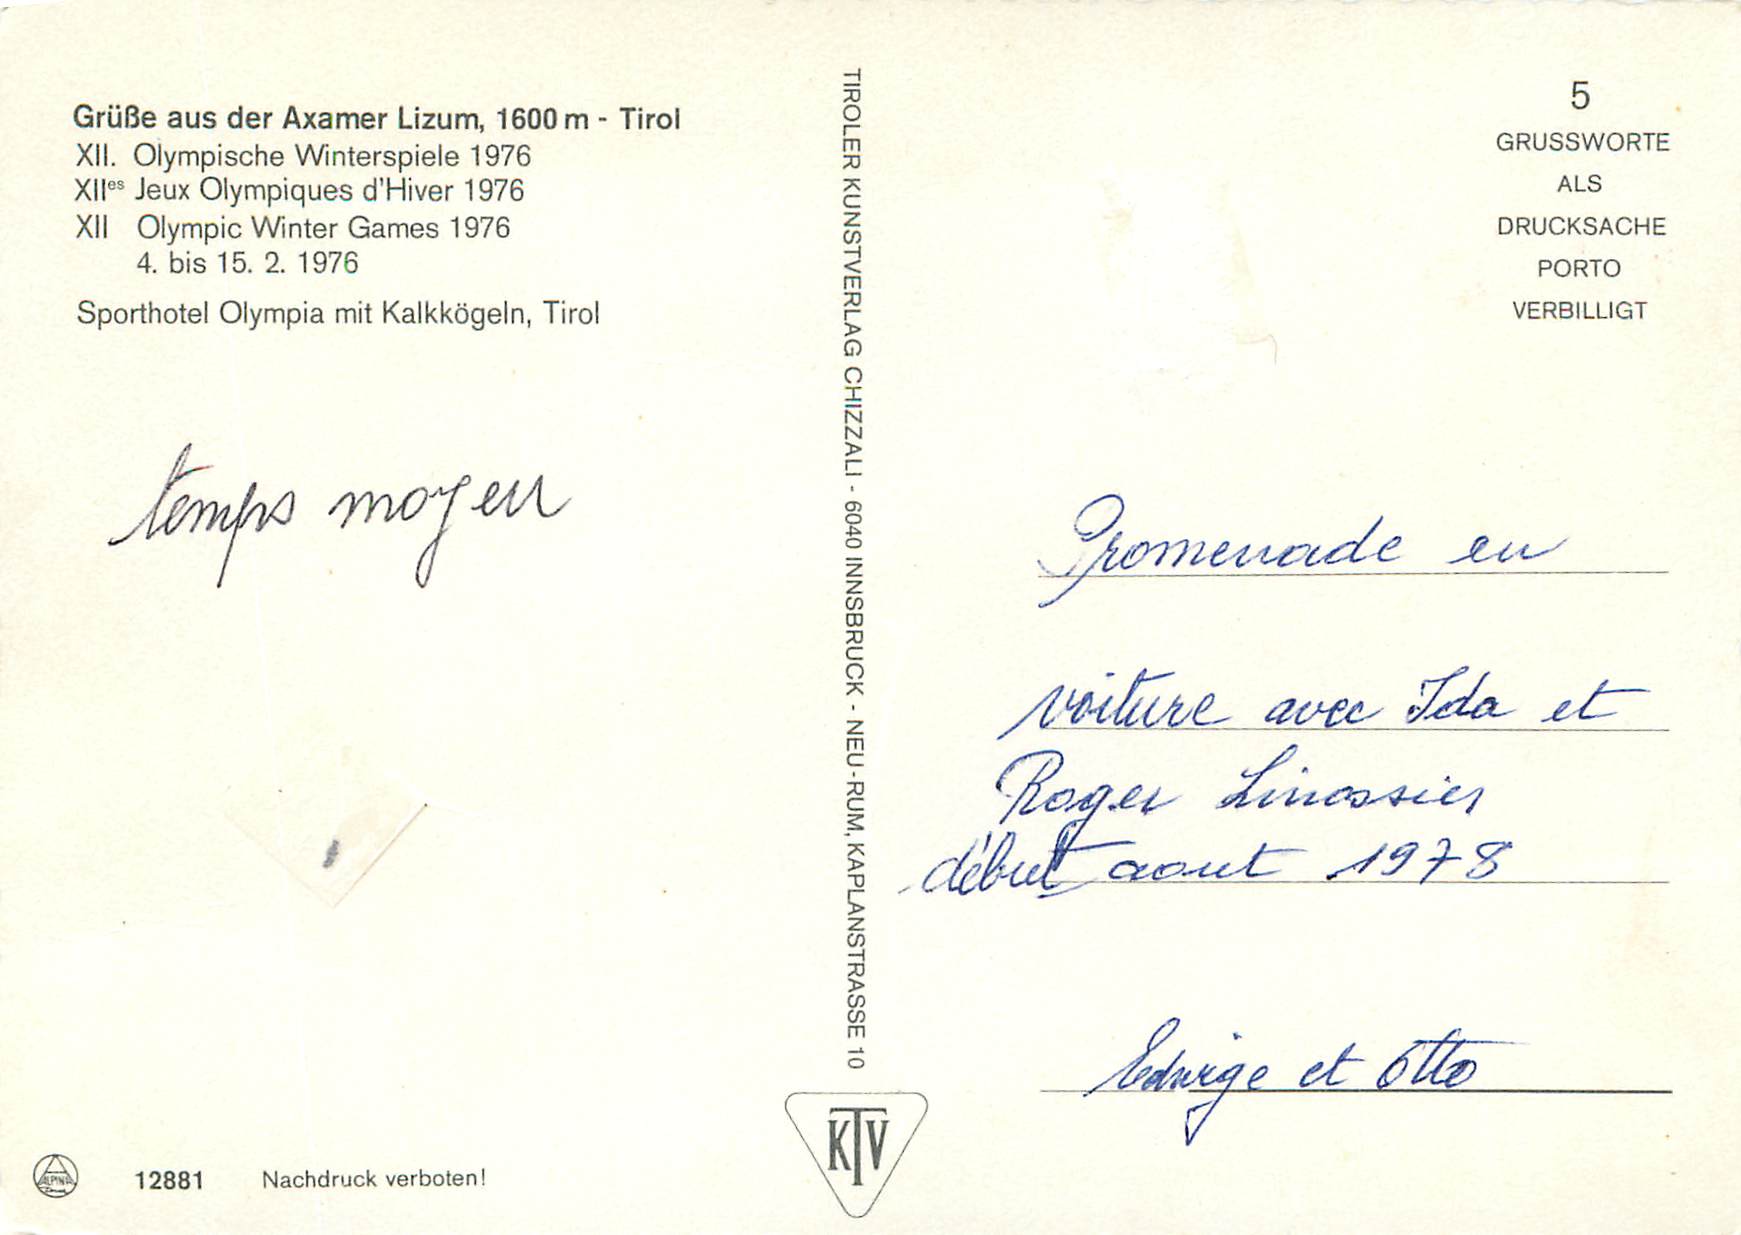 Grüße aus der Axamer Lizum, 1600 m - Tirol
XII. Olympische Winterspiele 1976
XIIes Jeux Olympiques d'Hiver 1976
XII Olympic Winter Games 1976
4. bis 15. 2. 1976
Sporthotel Olympia mit Kalkkögeln, Tirol
temps moyen
ALPINA
12881 Nachdruck verboten!
TIROLER KUNSTVERLAG CHIZZALI - 6040 INNSBRUCK - NEU-RUM, KAPLANSTRASSE 10
KTV
5
GRUSSWORTE
ALS
DRUCKSACHE
PORTO
VERBILLIGT
Promenade en
voiture avec Ida et
Roger Linossier
début aout 1978
Edwige et Otto